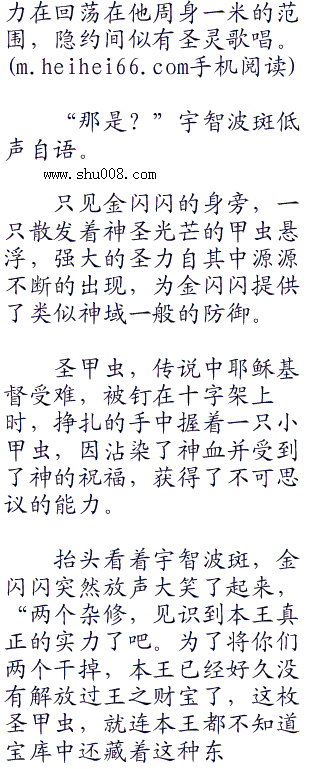 力在回荡在他周身一米的范
围，隐约间似有圣灵歌唱。
(m.heihei66.com手机阅读)
“那是？”宇智波斑低
声自语。
www.shu008.com
只见金闪闪的身旁，一
只散发着神圣光芒的甲虫悬
浮，强大的圣力自其中源源
不断的出现，为金闪闪提供
了类似神域一般的防御。
圣甲虫，传说中耶稣基
督受难，被钉在十字架上
时，挣扎的手中握着一只小
甲虫，因沾染了神血并受到
了神的祝福，获得了不可思
议的能力。
抬头看着宇智波斑，金
闪闪突然放声大笑了起来，
“两个杂修，见识到本王真
正的实力了吧。为了将你们
两个干掉，本王已经好久没
有解放过王之财宝了，这枚
圣甲虫，就连本王都不知道
宝库中还藏着这种东